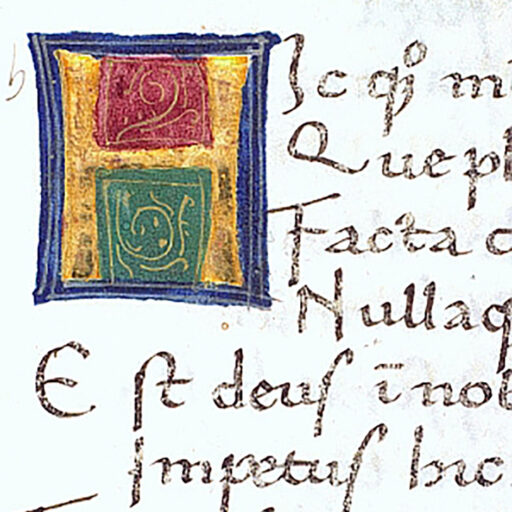 h
HIc qͦ mi
Que pl
Facta c
Nullaq
Est deus ī nob
Impetus hinc